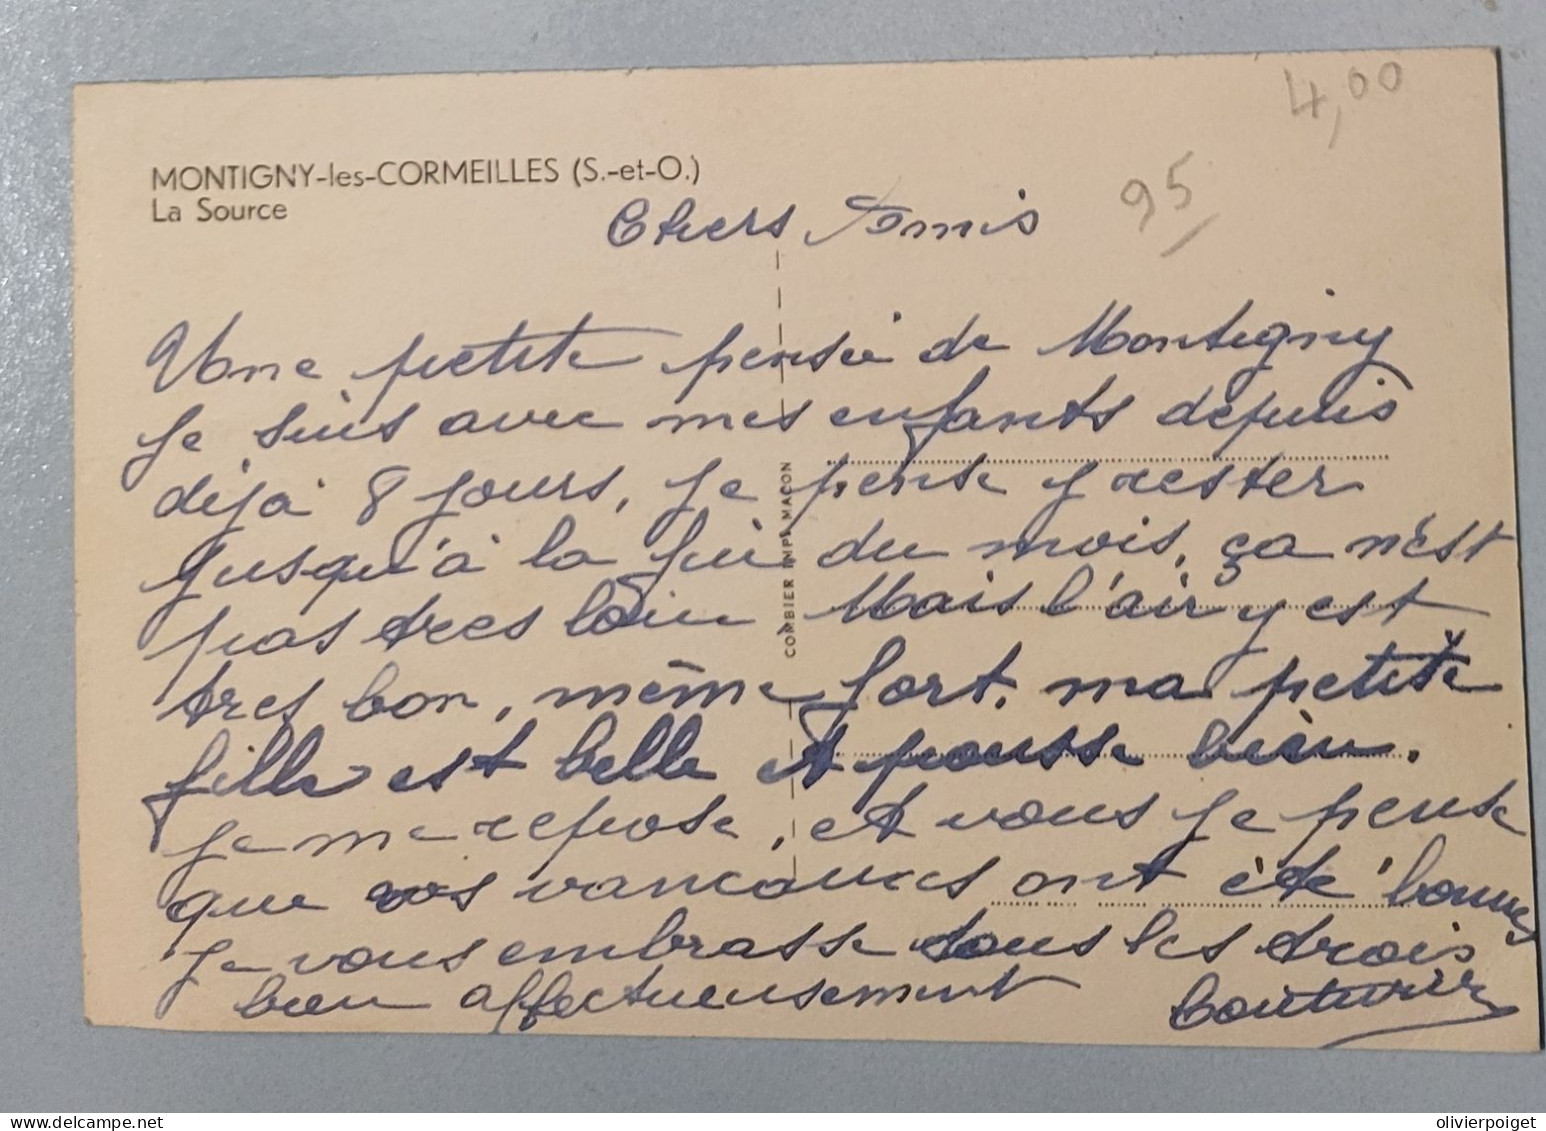 4,00
95
MONTIGNY-les-CORMEILLES (S.-et-O.)
La Source
Chers Amis
Une petite pensée de Montigny
je suis avec mes enfants depuis
déjà 8 jours, je pense y rester
jusqu'à la fin du mois, ça n'est
pas tres loin Mais l'air y est
tres bon, même fort, ma petite
fille est belle et pousse bien.
je me repose, et vous je pense
que vos vancances ont été bonnes
je vous embrasse tous les trois
bien affectueusement
COMBIER IMP. MACON
olivierpoiget